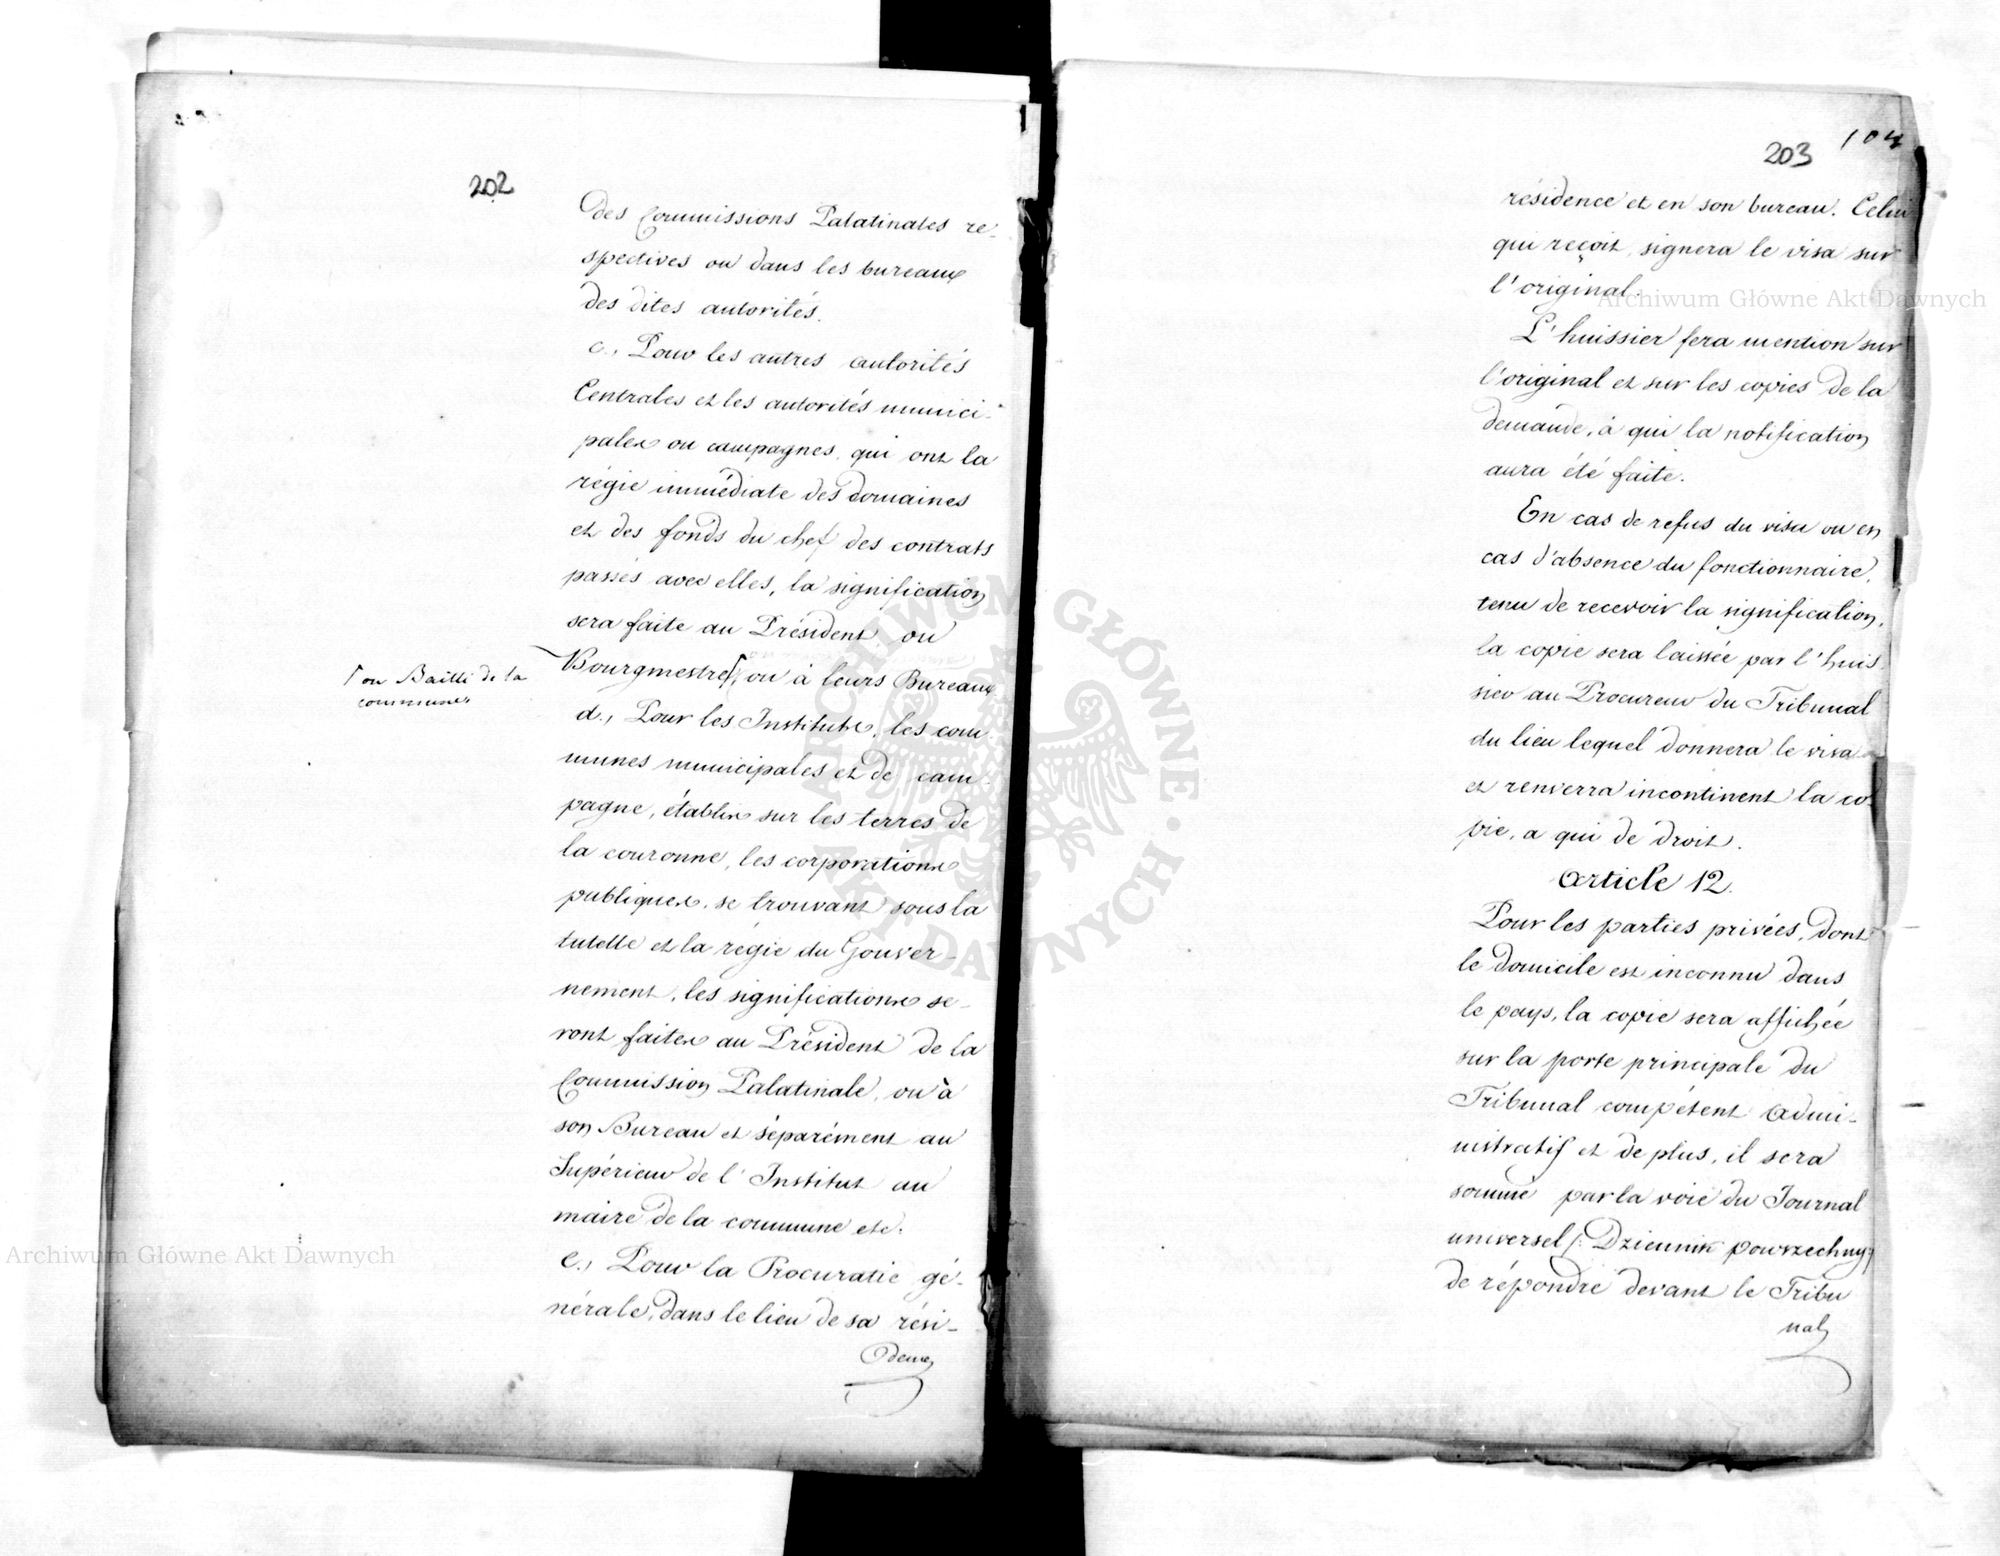 202
des Commissions Palatinales re-
spectives ou dans les bureaux
des dites autorités.
c., Pour les autres autorités
Centrales et les autorités munici-
pales ou campagnes, qui ont la
régie immédiate des domaines
et des fonds du chef des contrats
passés avec elles, la signification
sera faite au Président ou
Bourgmestre, ou à leurs Bureaux
ou Bailli de la
commune
d., Pour les Instituts, les com
munes municipales et de cam
pagne, établis sur les terres de
la couronne, les corporations
publiques, se trouvant sous la
tutelle et la régie du Gouver-
nement, les significations se-
ront faites au Président de la
Commission Palatinale, ou à
son Bureau et séparément au
Supérieur de l'Institut au
maire de la commune etc.
e., Pour la Procuratie gé-
nérale, dans le lieu de sa rési-
dence
203
104
résidence et en son bureau. Celui
qui reçoit, signera le visa sur
l'original.
L'huissier fera mention sur
l'original et sur les copies de la
demande, à qui la notification
aura été faite.
En cas de refus du visa ou en
cas d'absence du fonctionnaire,
tenu de recevoir la signification,
la copie sera laissée par l'huis
sier au Procureur du Tribunal
du lieu lequel donnera le visa
et renverra incontinent la co-
pie, a qui de droit.
Article 12.
Pour les parties privées, dont
le domicile est inconnu dans
le pays, la copie sera affichée
sur la porte principale du
Tribunal compétent Admi-
nistratif et de plus, il sera
sommé par la voie du Journal
universel /: Dziennik powszechny:/
de répondre devant le Tribu
nal
Archiwum Główne Akt Dawnych
Archiwum Główne Akt Dawnych
ARCHIWUM GŁÓWNE AKT DAWNYCH